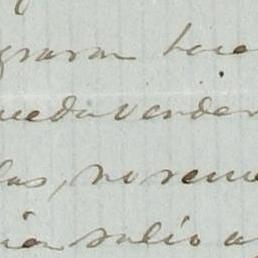 graran hace
ueda vender
las, no reme
ia salio a